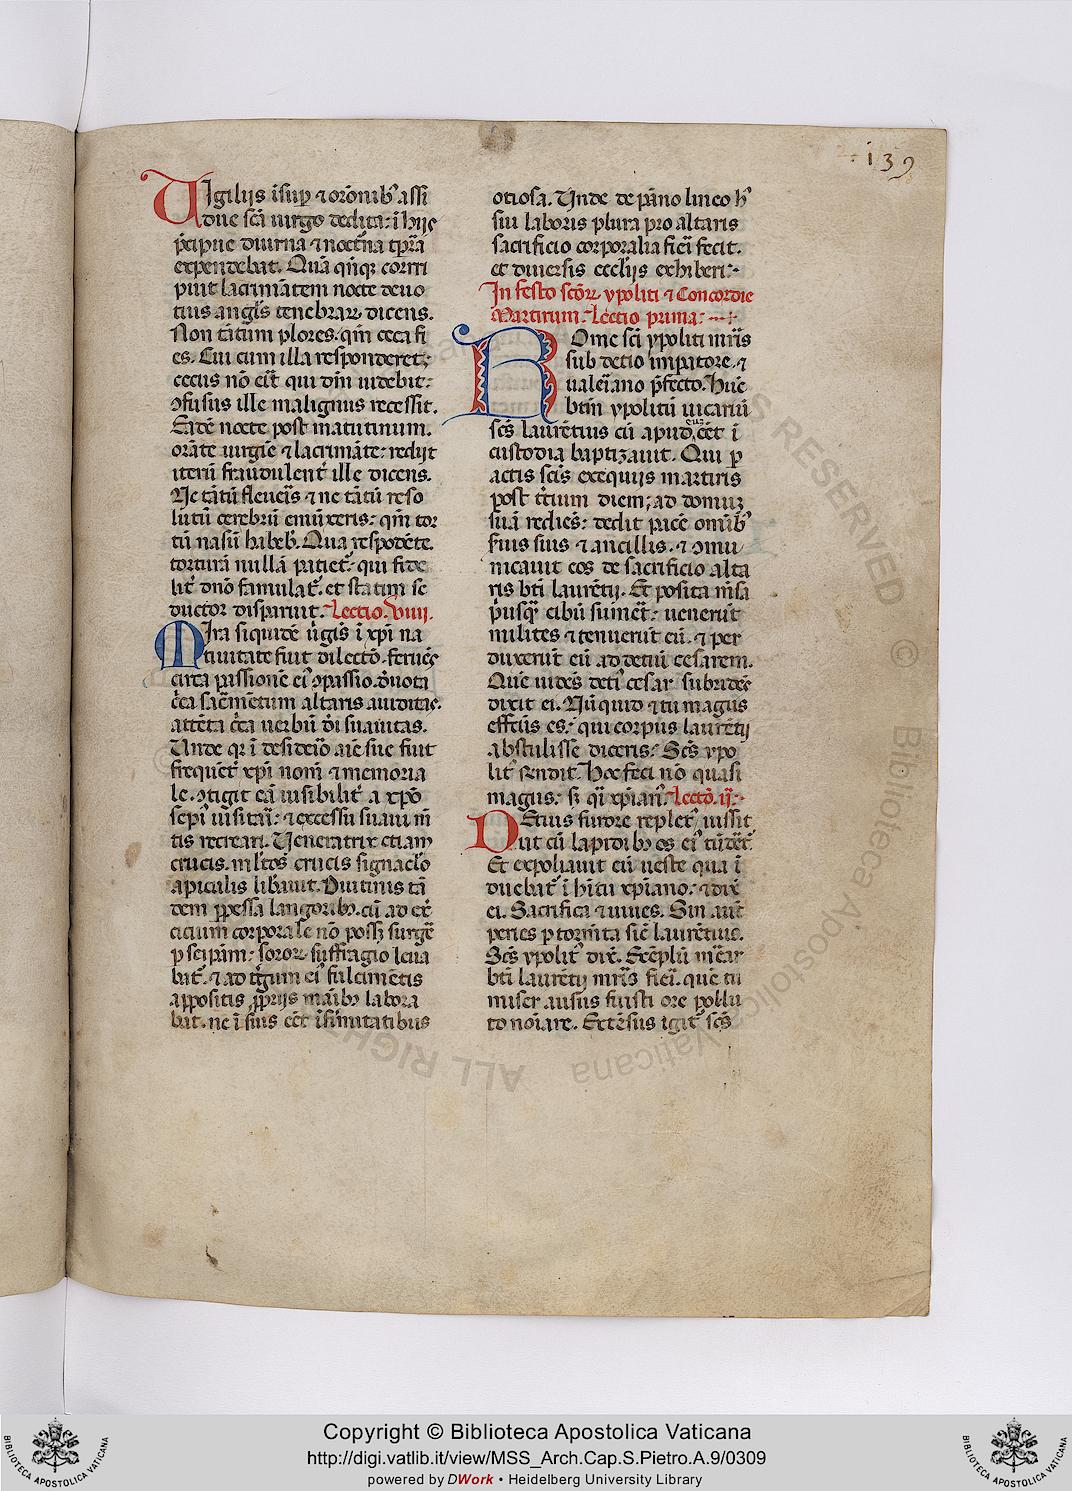 139
Vigilijs īsup̄ ⁊ orōnib᷒ assi
due scā uirgo dedita: ī hijs
p̄cipue diurna ⁊ noct̄na tp̄ra
expendebat. Quā q̄nq̄ corrri
puit lacrimātem nocte deuo
tius angl̄s tenebraꝝ dicens.
Non tātum plores. qm̄ ceca fi
es. Cui cum illa responderet;
cecus nō eīt qui dn̄m uidebit:
ꝯfusus ille malignus recessit.
Eādē nocte post matutinum.
orāte uirgīe ⁊ lacrimāte: redijt
iterū fraudulent᷒ ille dicens.
Ne tātū fleueīs ⁊ ne tātū reso
lutū cerebrū emūxeris: qm̄ tor
tū nasū habeb᷒. Qua respōdēte.
torturā nullā patiet᷒: qui fide
lit᷒ dn̄o famulat᷒. et statim se
ductor disparuit. Lectio. Viiij.
Mira siquidē ūgīs ī xp̄i na
tiuitate fuit dilectō. feruēs
circa passionē ei᷒ ꝯpassio. deuota
c̄ca sac̄mētum altaris auiditas.
attēta c̄ca uerbū dī suauitas.
Unde qr̄ ī desideīo aīe sue fuit
frequēt᷒ xp̄i nom̄ ⁊ memoria
le. ꝯtigit eā uisibilit᷒ a xp̄o
sepī uisitaī: ⁊ excessu suaui m̄
tis recreari. Veneratrix etiam
crucis. ml̄tos crucis signaclō
a piculis libauit. Diutinis tā
dem p̄pessa langoribꝫ. cū ad ex̄
cicium corporale nō possꝫ surgē
p seipām: soroꝝ suffragio leua
bat᷒. ⁊ ad t̄gum ei᷒ fulcimētis
appositis p̄prijs maībꝫ labora
bat. ne ī suis eēt īfirmitatibus
otiosa. Unde de pāno lineo h᷒
sui laboris plura pro altaris
sacrificio corporalia fieri fecit.
et diuersis eccl̄ijs exhiberi:
In festo sc̄oꝝ ypoliti ⁊ Concordie
Martirum. Lectio prima:
Rome scī ypoliti mr̄is
sub detio imp̄atore. ⁊
ualeīano p̄fecto. Hūc
btm̄ ypolitū uicariū
sc̄s laurētius cū apud euꝫ eēt ī
custodia baptizauit. Qui p
actis scīs exequijs martiris
post t̄tium diem; ad domuꝫ
suā rediēs: dedit pacē omībꝫ
suis suis ⁊ ancillis. ⁊ ꝯmu
nicauit eos de sacrificio alta
ris btī laurētij. Et posita mēsa
p̄usqꝫ cibū sumēt: uenerūt
milites ⁊ tenuerūt eū. ⁊ per
duxerūt eū ad detiū cesarem.
Quē uidēs deti᷒ cesar subridēs
dixit ei. Nūquid ⁊ tu magus
effct̄us es: qui corpus laurētij
abstulisse diceris: Sc̄s ypo
lit᷒ rn̄dit. Hoc feci nō quasi
magus: sꝫ qī xp̄ian᷒. Lectō. ij:
Detius furore replet᷒ iussit
ut cū lapidibꝫ os ei᷒ tūdēt᷒.
Et expoliauit eū ueste qua ī
duebat᷒ ī hītu xp̄iano: ⁊ dix̄
ei. Sacrifica ⁊ uiues. Sin aūt
peries p torm̄ta sic̄ laurētius.
Sc̄s ypolit᷒ dix̄. Exēplū m̄ear
btī laurētij mr̄is fieri. quē tu
miser ausus fuisti ore pollu
to noīare. Extēsus igit᷒ sc̄s
Copyright © Biblioteca Apostolica Vaticana
http://digi.vatlib.it/view/MSS_Arch.Cap.S.Pietro.A.9/0309
powered by DWork • Heidelberg University Library